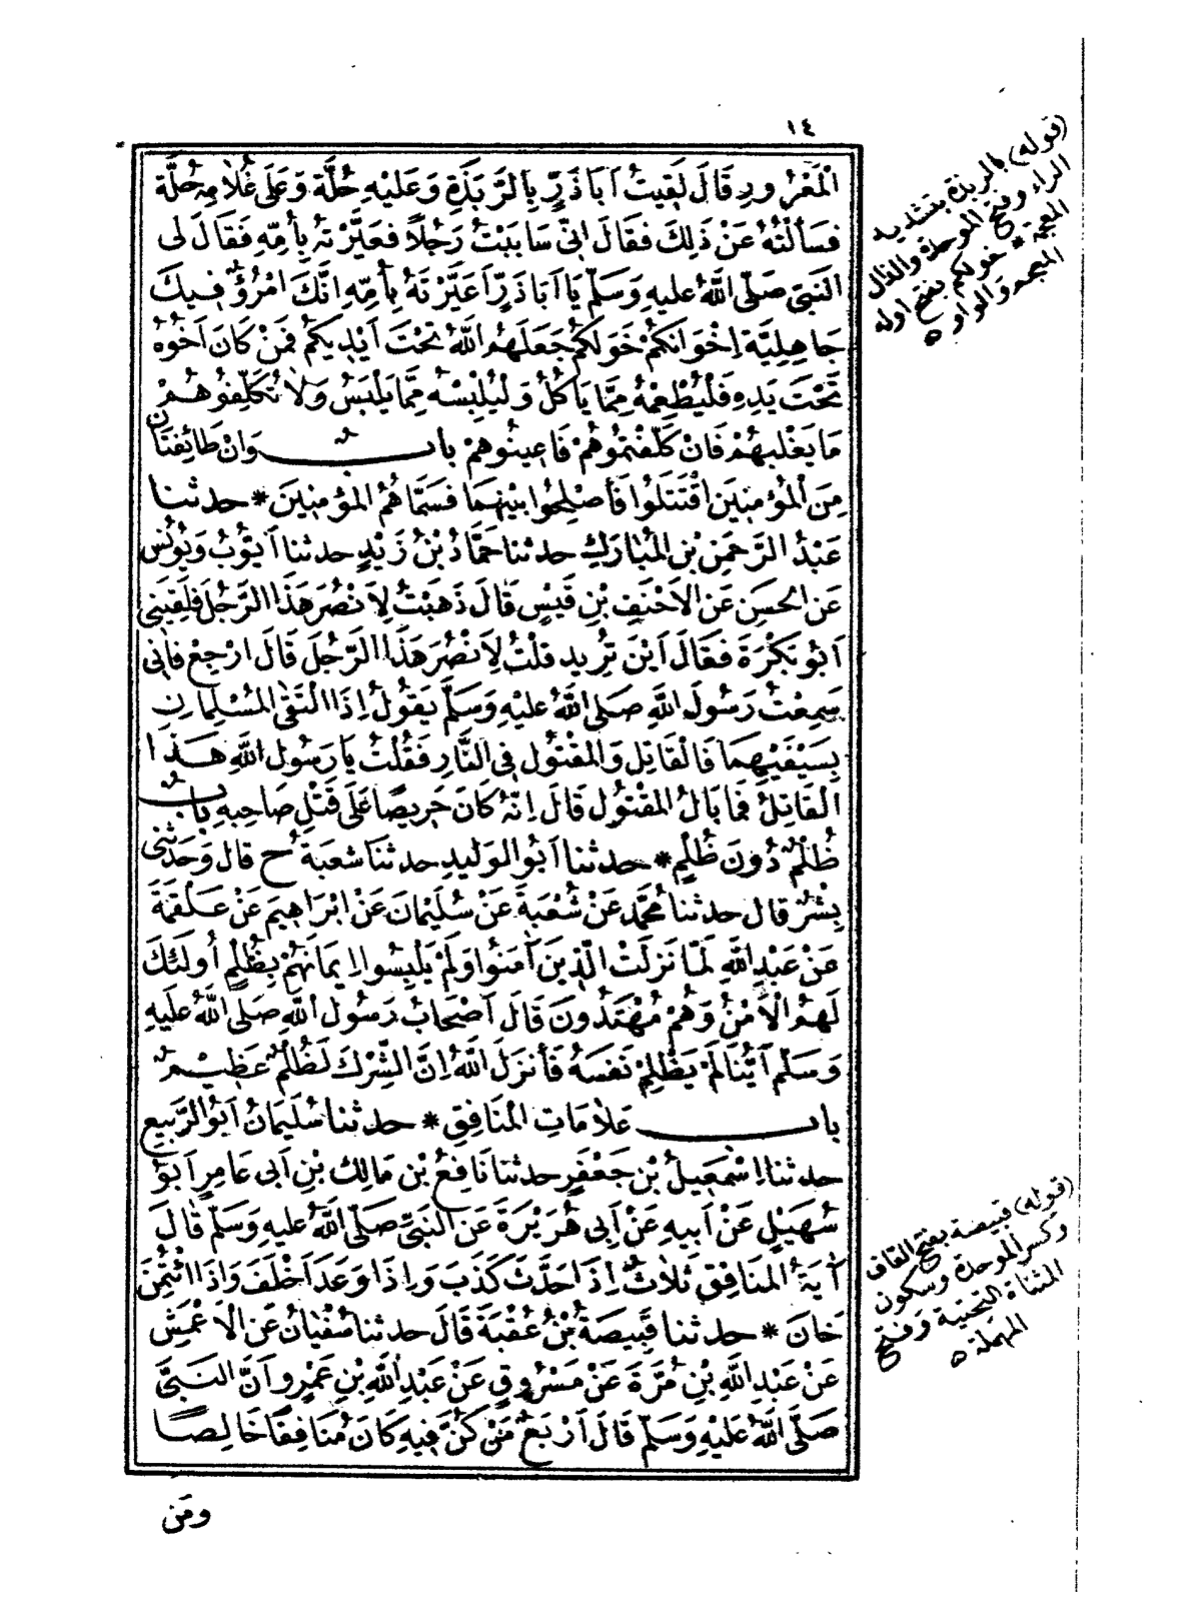 ١٤
الْمَعْرُورِ قَالَ لَقِيتُ أَبَا ذَرٍّ بِالرَّبَذَةِ وَعَلَيْهِ حُلَّةٌ وَعَلَى غُلَامِهِ حُلَّةٌ
فَسَأَلْتُهُ عَنْ ذَلِكَ فَقَالَ إِنِّي سَابَبْتُ رَجُلًا فَعَيَّرْتُهُ بِأُمِّهِ فَقَالَ لِي
النَّبِيُّ صَلَّى اللّٰهُ عَلَيْهِ وَسَلَّمَ يَا أَبَا ذَرٍّ أَعَيَّرْتَهُ بِأُمِّهِ إِنَّكَ امْرُؤٌ فِيكَ
جَاهِلِيَّةٌ إِخْوَانُكُمْ خَوَلُكُمْ جَعَلَهُمُ اللّٰهُ تَحْتَ أَيْدِيكُمْ فَمَنْ كَانَ أَخُوهُ
تَحْتَ يَدِهِ فَلْيُطْعِمْهُ مِمَّا يَأْكُلُ وَلْيُلْبِسْهُ مِمَّا يَلْبَسُ وَلَا تُكَلِّفُوهُمْ
مَا يَغْلِبُهُمْ فَإِنْ كَلَّفْتُمُوهُمْ فَأَعِينُوهُمْ بابٌ وَإِنْ طَائِفَتَانِ
مِنَ الْمُؤْمِنِينَ اقْتَتَلُوا فَأَصْلِحُوا بَيْنَهُمَا فَسَمَّاهُمُ الْمُؤْمِنِينَ * حدثنا
عَبْدُ الرَّحْمَنِ بْنُ الْمُبَارَكِ حدثنا حَمَّادُ بْنُ زَيْدٍ حدثنا أَيُّوبُ وَيُونُسُ
عَنِ الْحَسَنِ عَنِ الْأَحْنَفِ بْنِ قَيْسٍ قَالَ ذَهَبْتُ لِأَنْصُرَ هَذَا الرَّجُلَ فَلَقِيَنِي
أَبُو بَكْرَةَ فَقَالَ أَيْنَ تُرِيدُ قُلْتُ لِأَنْصُرَ هَذَا الرَّجُلَ قَالَ ارْجِعْ فَإِنِّي
سَمِعْتُ رَسُولَ اللّٰهِ صَلَّى اللّٰهُ عَلَيْهِ وَسَلَّمَ يَقُولُ إِذَا الْتَقَى الْمُسْلِمَانِ
بِسَيْفَيْهِمَا فَالْقَاتِلُ وَالْمَقْتُولُ فِي النَّارِ فَقُلْتُ يَا رَسُولَ اللّٰهِ هَذَا
الْقَاتِلُ فَمَا بَالُ الْمَقْتُولِ قَالَ إِنَّهُ كَانَ حَرِيصًا عَلَى قَتْلِ صَاحِبِهِ بابٌ
ظُلْمٌ دُونَ ظُلْمٍ * حدثنا أَبُو الْوَلِيدِ حدثنا شُعْبَةُ ح قال وَحَدَّثَنِي
بِشْرٌ قال حدثنا مُحَمَّدٌ عَنْ شُعْبَةَ عَنْ سُلَيْمَانَ عَنْ إِبْرَاهِيمَ عَنْ عَلْقَمَةَ
عَنْ عَبْدِ اللّٰهِ لَمَّا نَزَلَتْ الَّذِينَ آمَنُوا وَلَمْ يَلْبِسُوا إِيمَانَهُمْ بِظُلْمٍ أُولَئِكَ
لَهُمُ الْأَمْنُ وَهُمْ مُهْتَدُونَ قَالَ أَصْحَابُ رَسُولِ اللّٰهِ صَلَّى اللّٰهُ عَلَيْهِ
وَسَلَّمَ أَيُّنَا لَمْ يَظْلِمْ نَفْسَهُ فَأَنْزَلَ اللّٰهُ إِنَّ الشِّرْكَ لَظُلْمٌ عَظِيمٌ
باب عَلَامَاتِ الْمُنَافِقِ * حدثنا سُلَيْمَانُ أَبُو الرَّبِيعِ
حدثنا إِسْمَعِيلُ بْنُ جَعْفَرٍ حدثنا نَافِعُ بْنُ مَالِكِ بْنِ أَبِي عَامِرٍ أَبُو
سُهَيْلٍ عَنْ أَبِيهِ عَنْ أَبِي هُرَيْرَةَ عَنِ النَّبِيِّ صَلَّى اللّٰهُ عَلَيْهِ وَسَلَّمَ قَالَ
آيَةُ الْمُنَافِقِ ثَلَاثٌ إِذَا حَدَّثَ كَذَبَ وَإِذَا وَعَدَ أَخْلَفَ وَإِذَا ائْتُمِنَ
خَانَ * حدثنا قَبِيصَةُ بْنُ عُقْبَةَ قَالَ حدثنا سُفْيَانُ عَنِ الْأَعْمَشِ
عَنْ عَبْدِ اللّٰهِ بْنِ مُرَّةَ عَنْ مَسْرُوقٍ عَنْ عَبْدِ اللّٰهِ بْنِ عَمْرٍو أَنَّ النَّبِيَّ
صَلَّى اللّٰهُ عَلَيْهِ وَسَلَّمَ قَالَ أَرْبَعٌ مَنْ كُنَّ فِيهِ كَانَ مُنَافِقًا خَالِصًا
ومَن
(قوله) بالربذة بتشديد
الراء وفتح الموحدة والذال
المعجمة * خولكم بفتح اوله
المعجم والواو ه
(قوله) قبيصة بفتح القاف
وكسر الموحدة وسكون
المثناة التحتية وفتح
المهملة ه